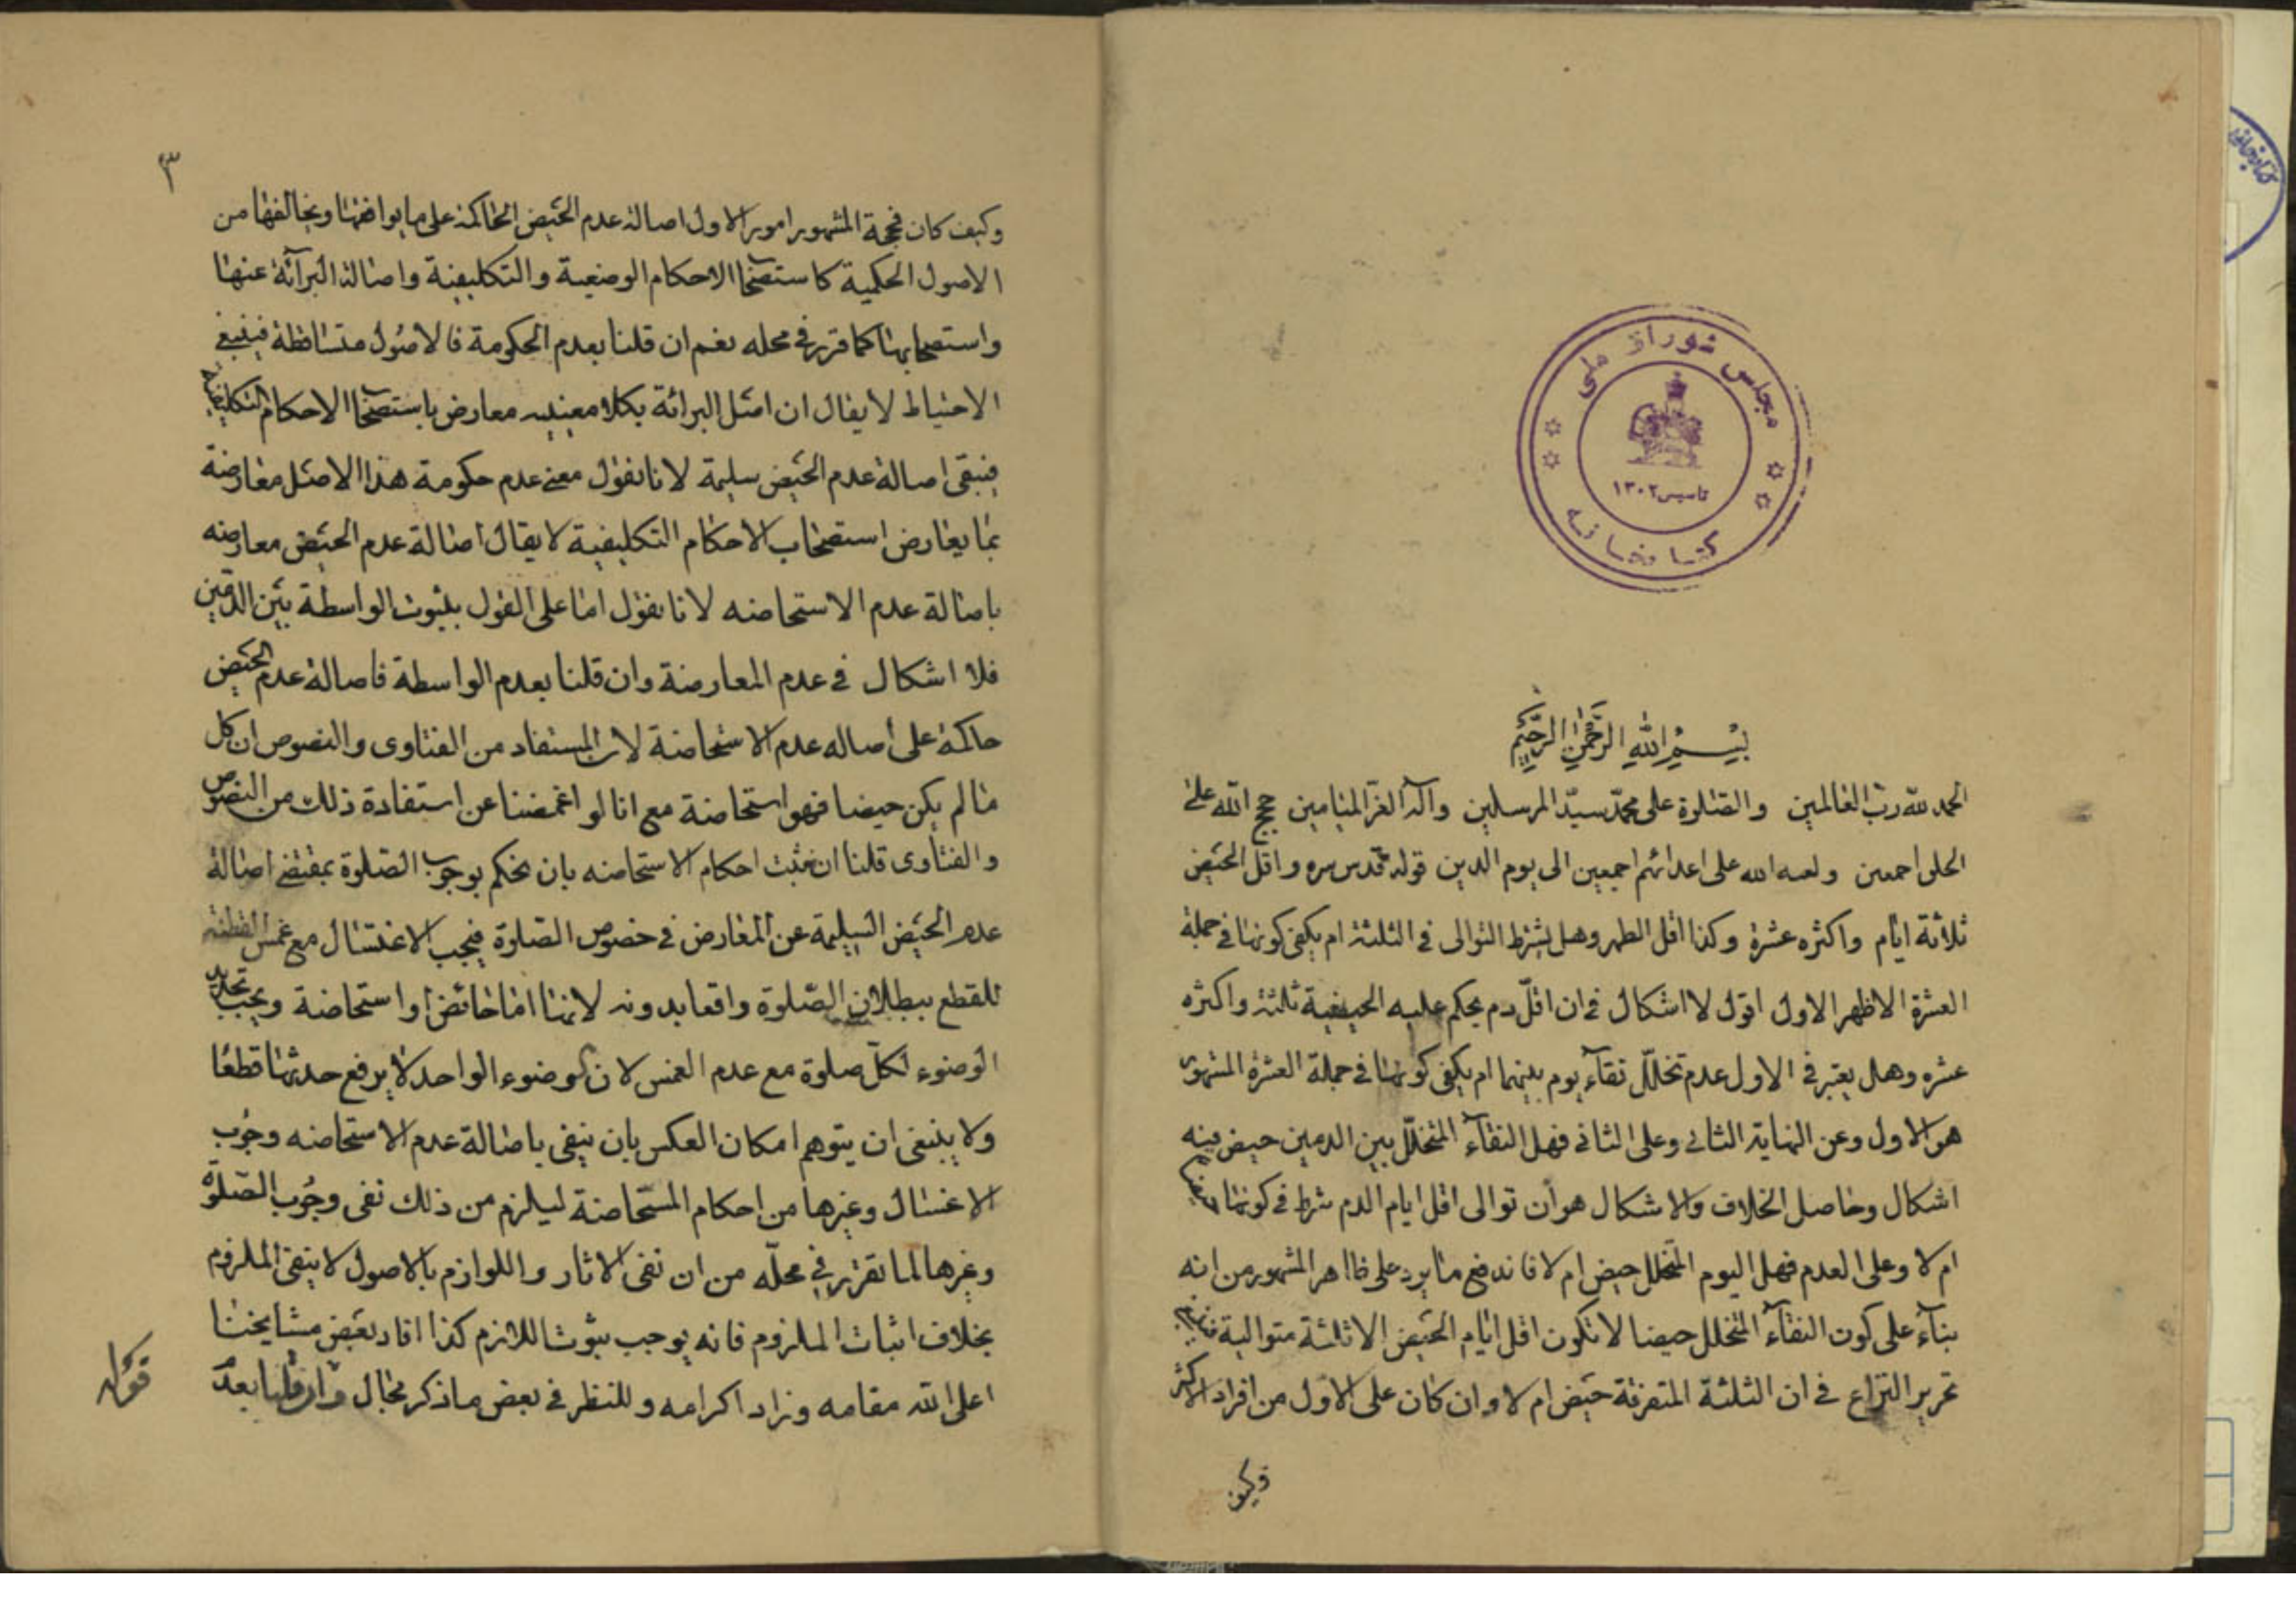 مجلس شورای ملی
تاسیس ۱۳۰۲
کتابخانه
بسم الله الرحمن الرحیم
الحمد لله رب العالمین والصلوة علی محمد سید المرسلین وآله الغر المیامین حجج الله علی
الخلق اجمعین ولعنة الله علی اعدائهم اجمعین الی یوم الدین قوله قدس سره واقل الحیض
ثلاثة ایام واکثره عشرة وکذا اقل الطهر وهل یشترط التوالی فی الثلثة ام یکفی کونها فی جملة
العشرة الاظهر الاول اقول لا اشکال فی ان اقل دم یحکم علیه الحیضیة ثلثة واکثره
عشره وهل یعتبر فی الاول عدم تخلل نقاء یوم بینهما ام یکفی کونها فی جملة العشرة المشهور
هو الاول وعن النهایة الثانی وعلی الثانی فهل النقاء المتخلل بین الدمین حیض فیه
اشکال وحاصل الخلاف والاشکال هو ان توالی اقل ایام الدم شرط فی کونها حیضا
ام لا وعلی العدم فهل الیوم المتخلل حیض ام لا فاندفع ما یرد علی ظاهر المشهور من انه
بناء علی کون النقاء المتخلل حیضا لا تکون اقل ایام الحیض الا ثلثة متوالیة
تحریر النزاع فی ان الثلثة المتفرقة حیض ام لا وان کان علی الاول من افراد الاکثر
وکیف
۳
وکیف کان فحجة المشهور امور الاول اصالة عدم الحیض الحاکمة علی ما یوافقها ویخالفها من
الاصول الحکمیة کاستصحاب الاحکام الوضعیة والتکلیفیة واصالة البرائة عنها
واستصحابها کما قرر فی محله نعم ان قلنا بعدم الحکومة فالاصول متساقطة فینبغی
الاحتیاط لا یقال ان اصل البرائة بکلا معنییه معارض باستصحاب الاحکام التکلیفیة
فیبقی اصالة عدم الحیض سلیمة لانا نقول معنی عدم حکومة هذا الاصل معارضة
بما یعارض استصحاب الاحکام التکلیفیة لا یقال اصالة عدم الحیض معارضه
باصالة عدم الاستحاضه لانا نقول اما علی القول بثبوت الواسطة بین الدمین
فلا اشکال فی عدم المعارضة وان قلنا بعدم الواسطة فاصالة عدم الحیض
حاکمة علی اصاله عدم الاستحاضة لان المستفاد من الفتاوی والنصوص ان کل
ما لم یکن حیضا فهو استحاضة مع انا لو اغمضنا عن استفادة ذلك من النصوص
والفتاوی قلنا ان نثبت احکام الاستحاضه بان نحکم بوجوب الصلوة بمقتضی اصالة
عدم الحیض السلیمة عن المعارض فی خصوص الصلوة فیجب الاغتسال مع غمس القطنة
للقطع ببطلان الصلوة واقعا بدونه لانها اما حائض او استحاضة ویجب تجدید
الوضوء لکل صلوة مع عدم الغمس لان الوضوء الواحد لا یرفع حدثها قطعا
ولا ینبغی ان یتوهم امکان العکس بان ینفی باصالة عدم الاستحاضه وجوب
الاغتسال وغیرها من احکام المستحاضة لیلزم من ذلك نفی وجوب الصلوة
وغیرها لما تقرر فی محله من ان نفی الاثار واللوازم بالاصول لا ینفی الملزوم
بخلاف اثبات الملزوم فانه یوجب ثبوت اللازم کذا افاد بعض مشایخنا
اعلی الله مقامه وزاد اکرامه وللنظر فی بعض ما ذکر مجال وان قلنا بعد